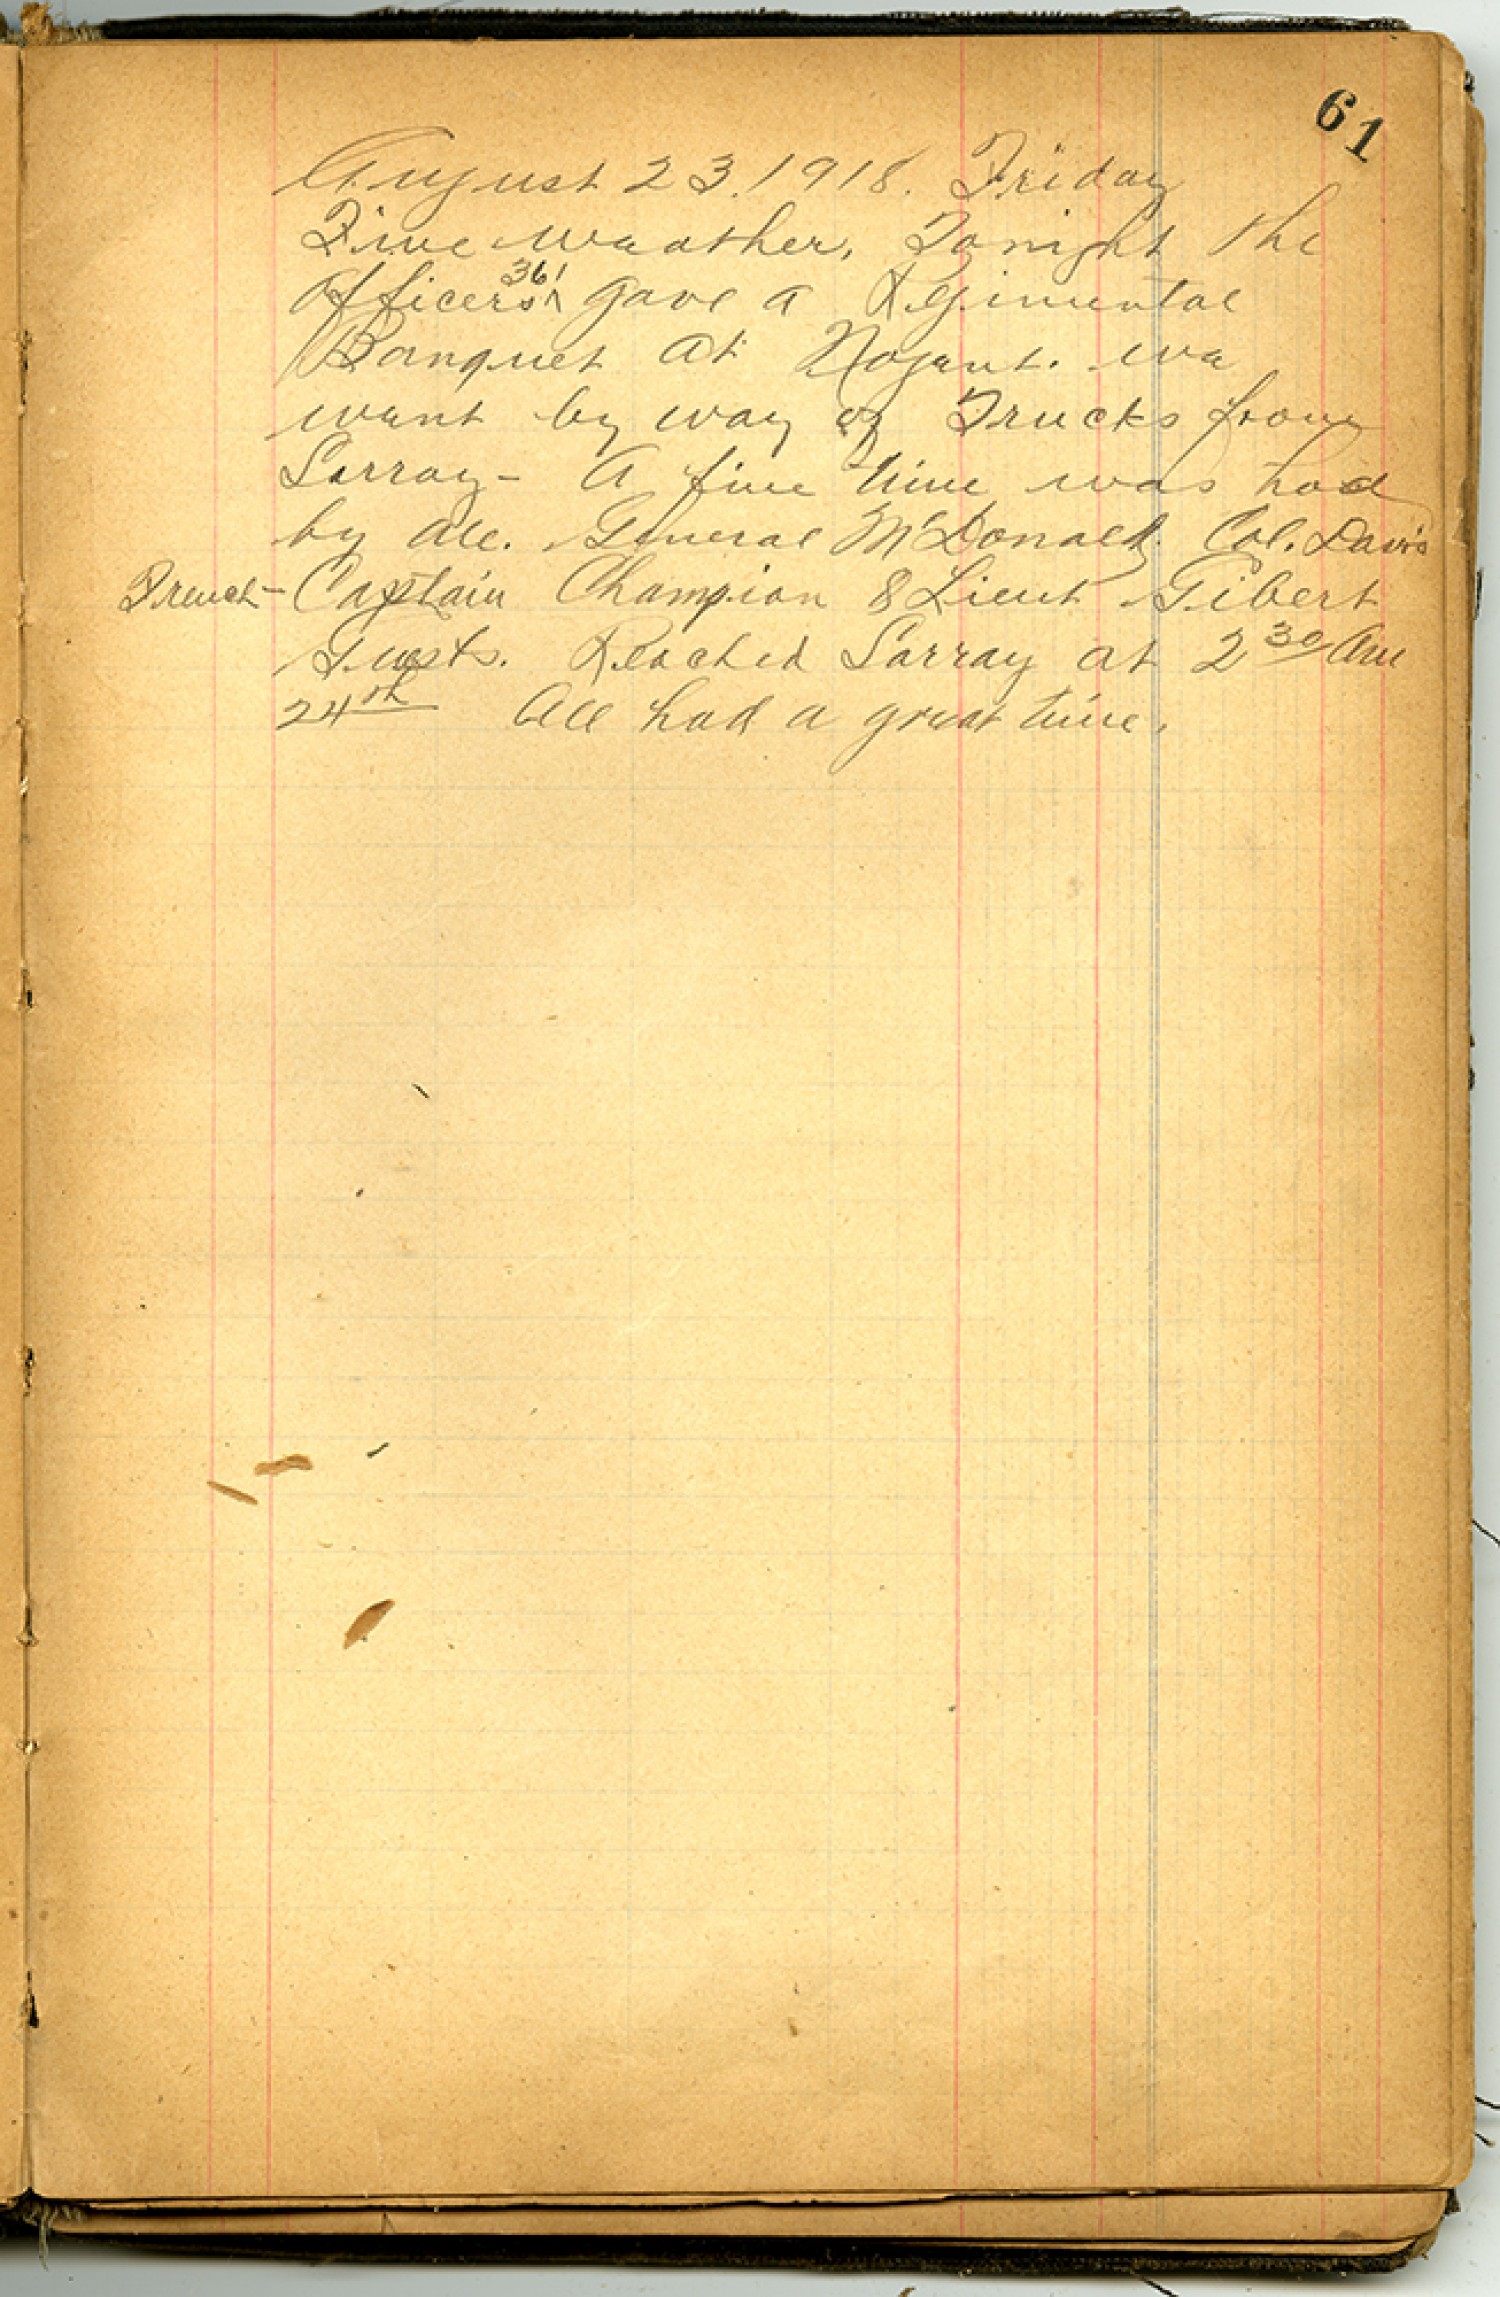 61
August 23, 1918. Friday
Fine weather. Tonight the
Officers 361 gave a Regimental
Banquet at Nogent. we
went by way of Trucks from
Sarrey - A fine time was had
by all. General McDonald. Col. Davis
French - Captain Champion & Lieut Gibert
Guests. Reached Sarrey at 2 30 Am
24th All had a great time.